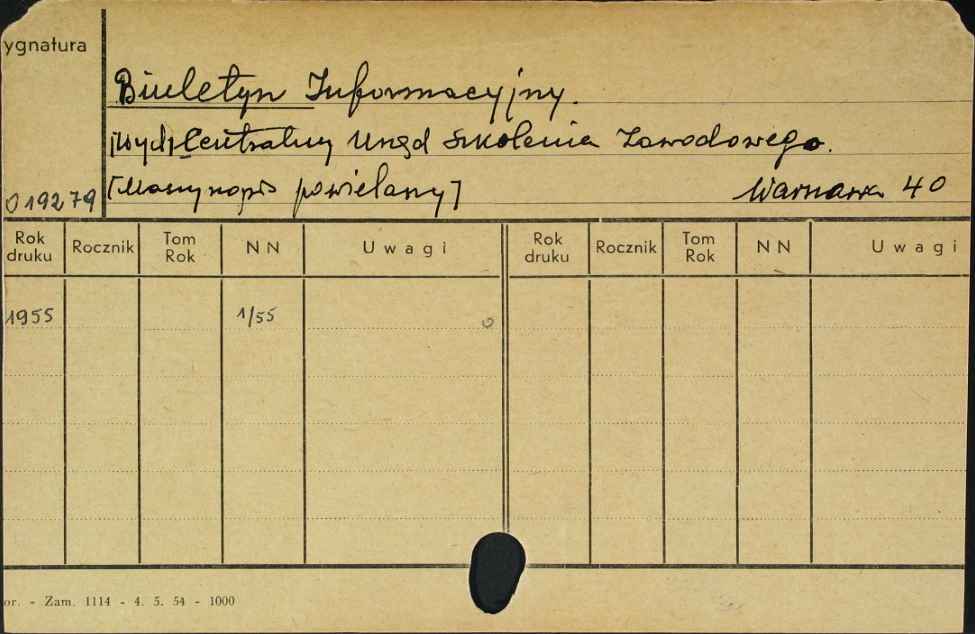 ygnatura
Biuletyn Informacyjny.
[Wyd] Centralny Urząd Szkolenia Zawodowego.
019279 [Maszynopis powielany] Warszawa 40
Rok druku Rocznik Tom Rok NN Uwagi Rok druku Rocznik Tom Rok NN Uwagi
1955 1/55
or. - Zam. 1114 - 4. 5. 54 - 1000